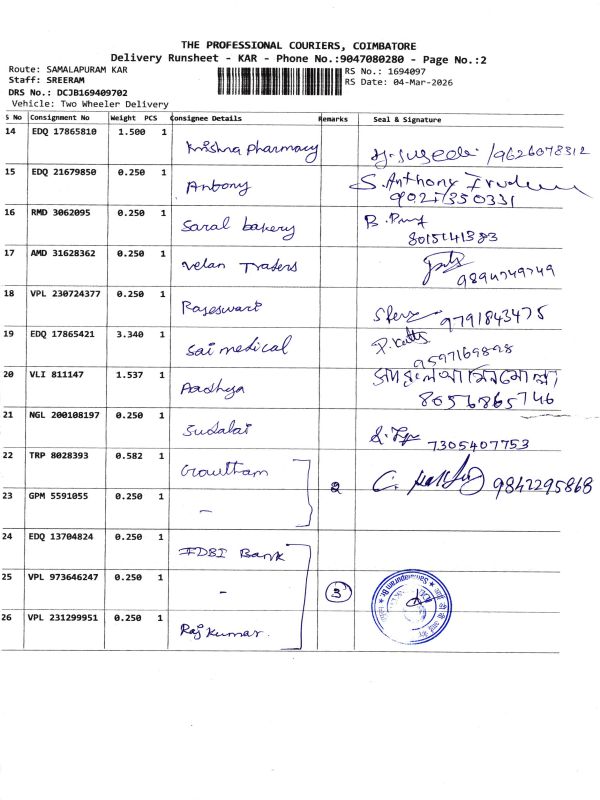 THE PROFESSIONAL COURIERS, COIMBATORE
Delivery Runsheet - KAR - Phone No.:9047080280 - Page No.:2
Route: SAMALAPURAM KAR
RS No.: 1694097
Staff: SREERAM
RS Date: 04-Mar-2026
DRS No.: DCJB169409702
Vehicle: Two Wheeler Delivery
S No Consignment No Weight PCS Consignee Details Remarks Seal & Signature
14 EDQ 17865810 1.500 1 Krishna pharmacy /9626078312
15 EDQ 21679850 0.250 1 Antony S. Anthony
16 RMD 3062095 0.250 1 Saral bakery
8015141383
17 AMD 31628362 0.250 1 Velan Traders
9894749749
18 VPL 230724377 0.250 1 Rajeswari 9791843475
19 EDQ 17865421 3.340 1 Sai medical
20 VLI 811147 1.537 1 Aadhya
8056865746
21 NGL 200108197 0.250 1 Sudalai 7305407753
22 TRP 8028393 0.582 1 Gowtham 2 9842295868
23 GPM 5591055 0.250 1 -
24 EDQ 13704824 0.250 1 IDBI Bank
25 VPL 973646247 0.250 1 - 3
26 VPL 231299951 0.250 1 Rajkumar.
Samalapuram Br.